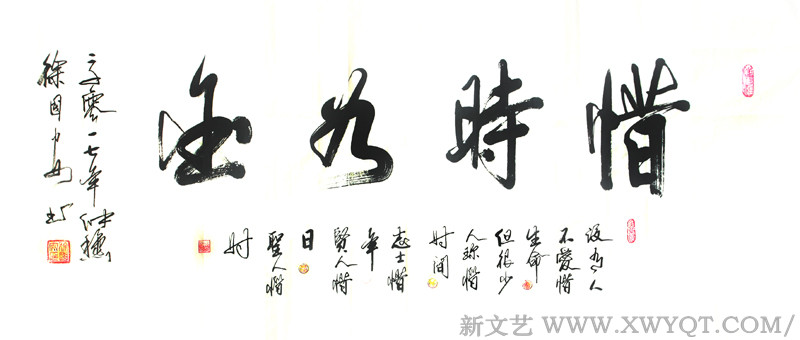 惜時如金
没有人
不愛惜
生命
但很少
人珍惜
时间
志士惜
年
賢人惜
日
聖人惜
时
零一七年仲穐
徐国书
新文艺 WWW.XWYQT.COM/